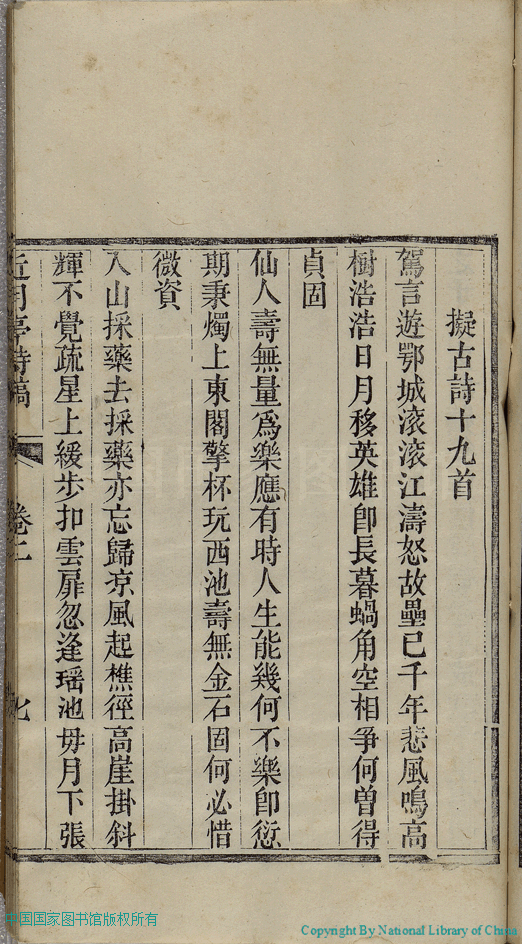 擬古詩十九首
駕言遊鄂城滚滚江濤怒故壘已千年悲風鳴高
樹浩浩日月移英雄卽長暮蝸角空相爭何曽得
貞固
仙人壽無量爲樂應有時人生能幾何不樂卽愆
期秉燭上東閣擎杯玩西池壽無金石固何必惜
微資
入山採藥去採藥亦忘歸凉風起樵徑高崖掛斜
輝不覺疏星上緩步扣雲扉忽逢瑶池毋月下張
近月亭詩稿 卷二 七
中国国家图书馆版权所有
Copyright By National Library of China